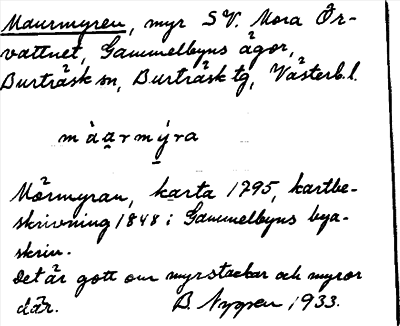 Maurmyren, myr SV. Mora Ör-
vattnet, Gammelbyns ägor,
Burträsk sn, Burträsk tg, Västerb. l.
màa̱rmýra
Mörmyran, karta 1795, kartbe-
skrivning 1848 i Gammelbyns bya-
skrin.
Det är gott om myrstackar och myror
där. B. Nygren 1933.